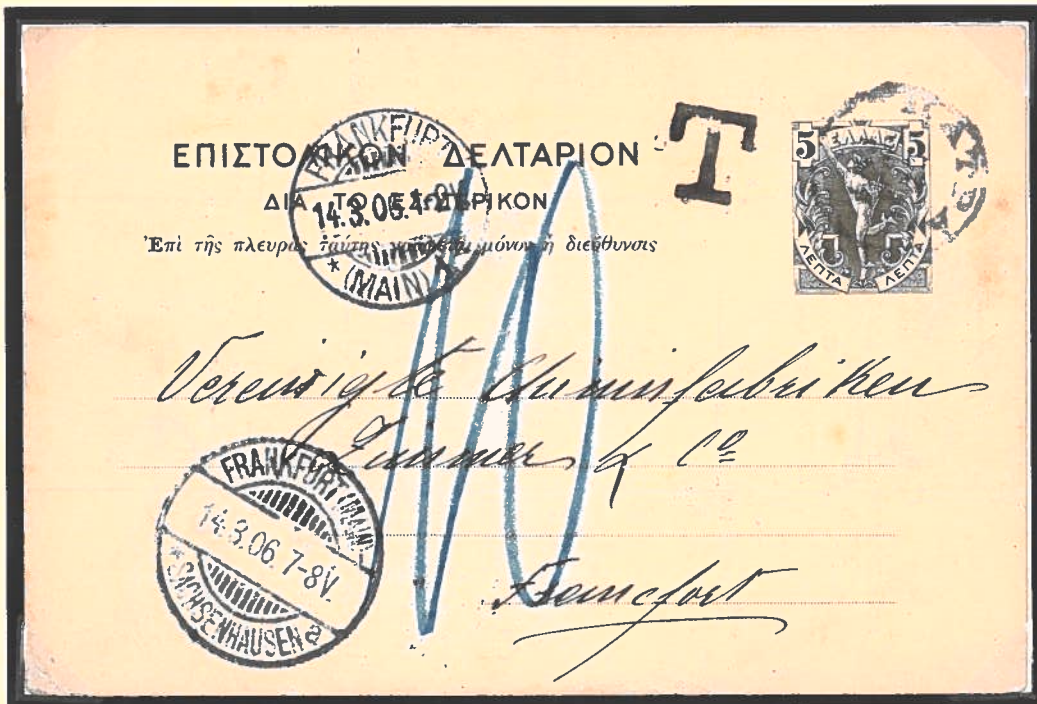 ΕΠΙΣΤΟΛΙΚΟΝ ΔΕΛΤΑΡΙΟΝ
ΔΙΑ ΤΟ ΕΞΩΤΕΡΙΚΟΝ
Ἐπὶ τῆς πλευρᾶς ταύτης γράφεται μόνον ἡ διεύθυνσις
T
5 ΕΛΛΑΣ 5
5 5
ΛΕΠΤΑ ΛΕΠΤΑ
FRANKFURT
14.3.06.
* (MAIN) 1
10
Vereinigte Gummifabriken
& Cº
Francfort
FRANKFURT (MAIN)-
14.3.06. 7-8V.
*SACHSENHAUSEN a